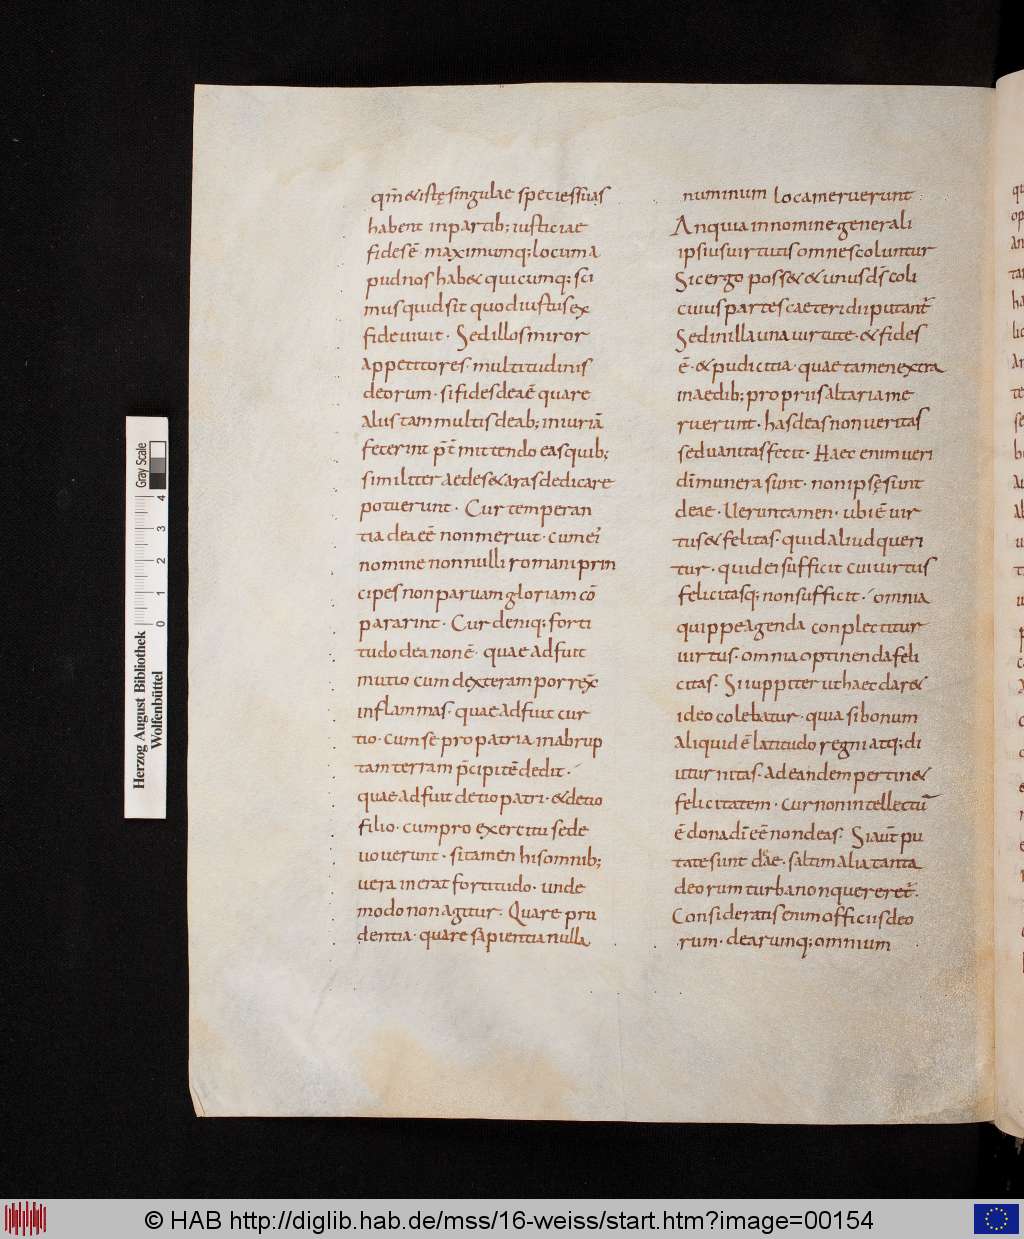 qm̄ & istę singulae species suas
habent in partib; iusticiae
fides ē maximumq; locum a
pud nos hab& quicumq; sci
mus quid sit quod iustus ex
fide uiuit· Sed illos miror
appetitores multitudinis
deorum· si fides dea ē quare
aliis tam multis deab; iniuriā
fecerint p̄t̄mittendo eas quib;
similiter aedes & aras dedicare
potuerunt· Cur temperan
tia dea eē non meruit· cum eı᾿
nomine nonnulli romani prin
cipes non paruam gloriam cō
pararint· Cur deniq; forti
tudo dea non ē· quae adfuit
mutio cum dexteram porrex̄
in flammas· quae adfuit cur
tio· cum se pro patria in abrup
tam terram p̄cipitē dedit·
quae adfuit detio patri· & detio
filio· cum pro exercitu se de
uouerunt· si tamen his omnib;
uera inerat fortitudo· unde
modo non agitur· Quare pru
dentia· quare sapientia nulla
numinum loca meruerunt
An quia in nomine generali
ipsius uirtutis omnes coluntur
Sic ergo poss& & unus d̄s coli
cuius partes caeteri dii putant᾿
Sed in illa una uirtute· & fides
ē· & pudicitia· quae tamen extra
in aedib; propriis altaria me
ruerunt· has deas non ueritas
sed uanitas fecit· Haec enim ueri
dī munera sunt· non ipsę sunt
deae· Ueruntamen· ubi ē uir
tus & felitas· quid aliud queri
tur· quid ei sufficit cui uirtus
felicitasq; non sufficit· omnia
quippe agenda conplectitur
uirtus· omnia optinenda feli
citas· Si iuppiter ut haec dar&
ideo colebatur· quia si bonum
aliquid ē latitudo regni atq; di
uturnitas· ad eandem pertin&
felicitatem· cur non intellectū
ē dona dī eē non deas· Si aut̄ pu
tate sunt deae· saltim alia tanta
deorum turba non quereret᾿·
Consideratis enim officiis deo
rum· dearumq; omnium
Herzog August Bibliothek
Wolfenbüttel
0 1 2 3 4
Gray Scale
© HAB http://diglib.hab.de/mss/16-weiss/start.htm?image=00154